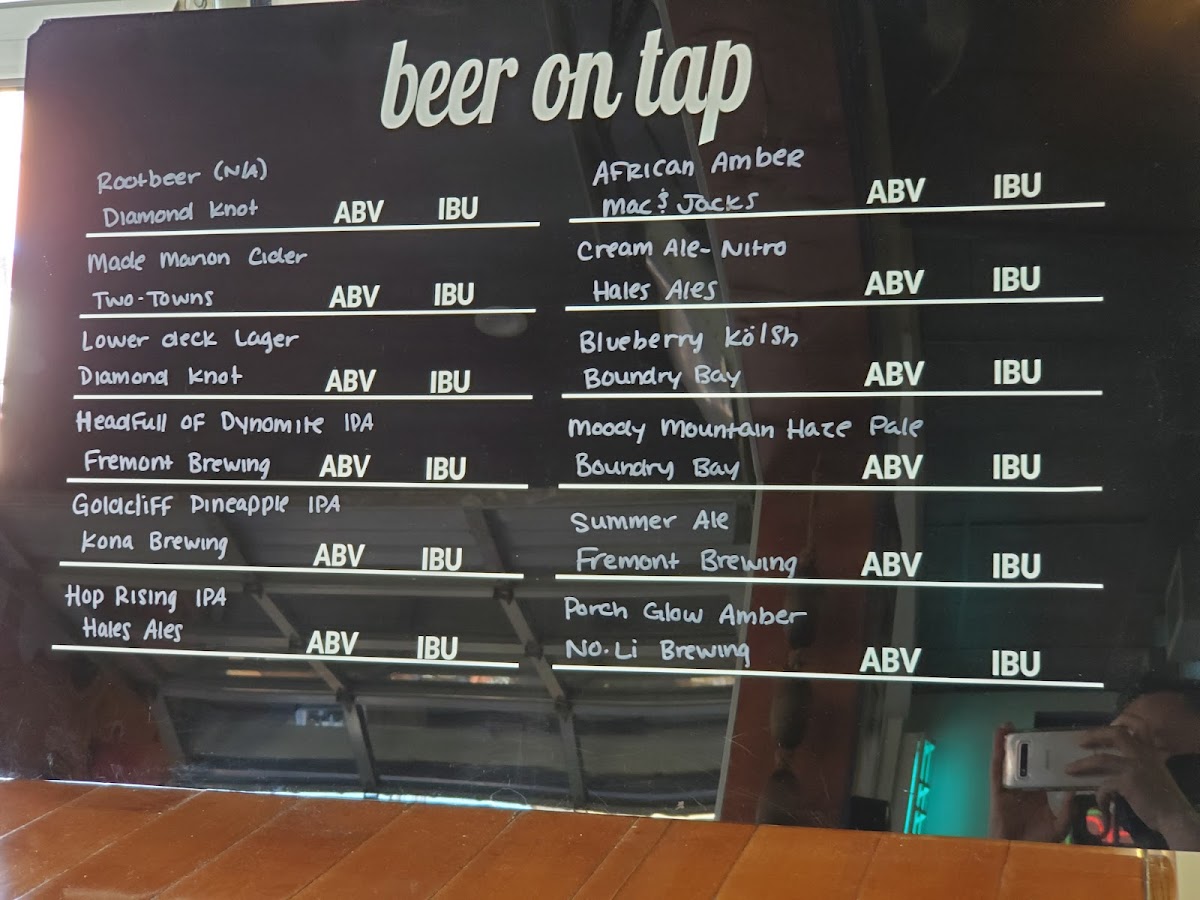 beer on tap
Rootbeer (N/A)
Diamond Knot ABV IBU
Made Marion Cider
Two-Towns ABV IBU
Lower deck Lager
Diamond Knot ABV IBU
Headfull of Dynomite IPA
Fremont Brewing ABV IBU
Goldcliff Pineapple IPA
Kona Brewing ABV IBU
Hop Rising IPA
Hales Ales ABV IBU
African Amber
Mac & Jacks ABV IBU
Cream Ale-Nitro
Hales Ales ABV IBU
Blueberry Kölsh
Boundry Bay ABV IBU
Moody Mountain Haze Pale
Boundry Bay ABV IBU
Summer Ale
Fremont Brewing ABV IBU
Porch Glow Amber
No-Li Brewing ABV IBU